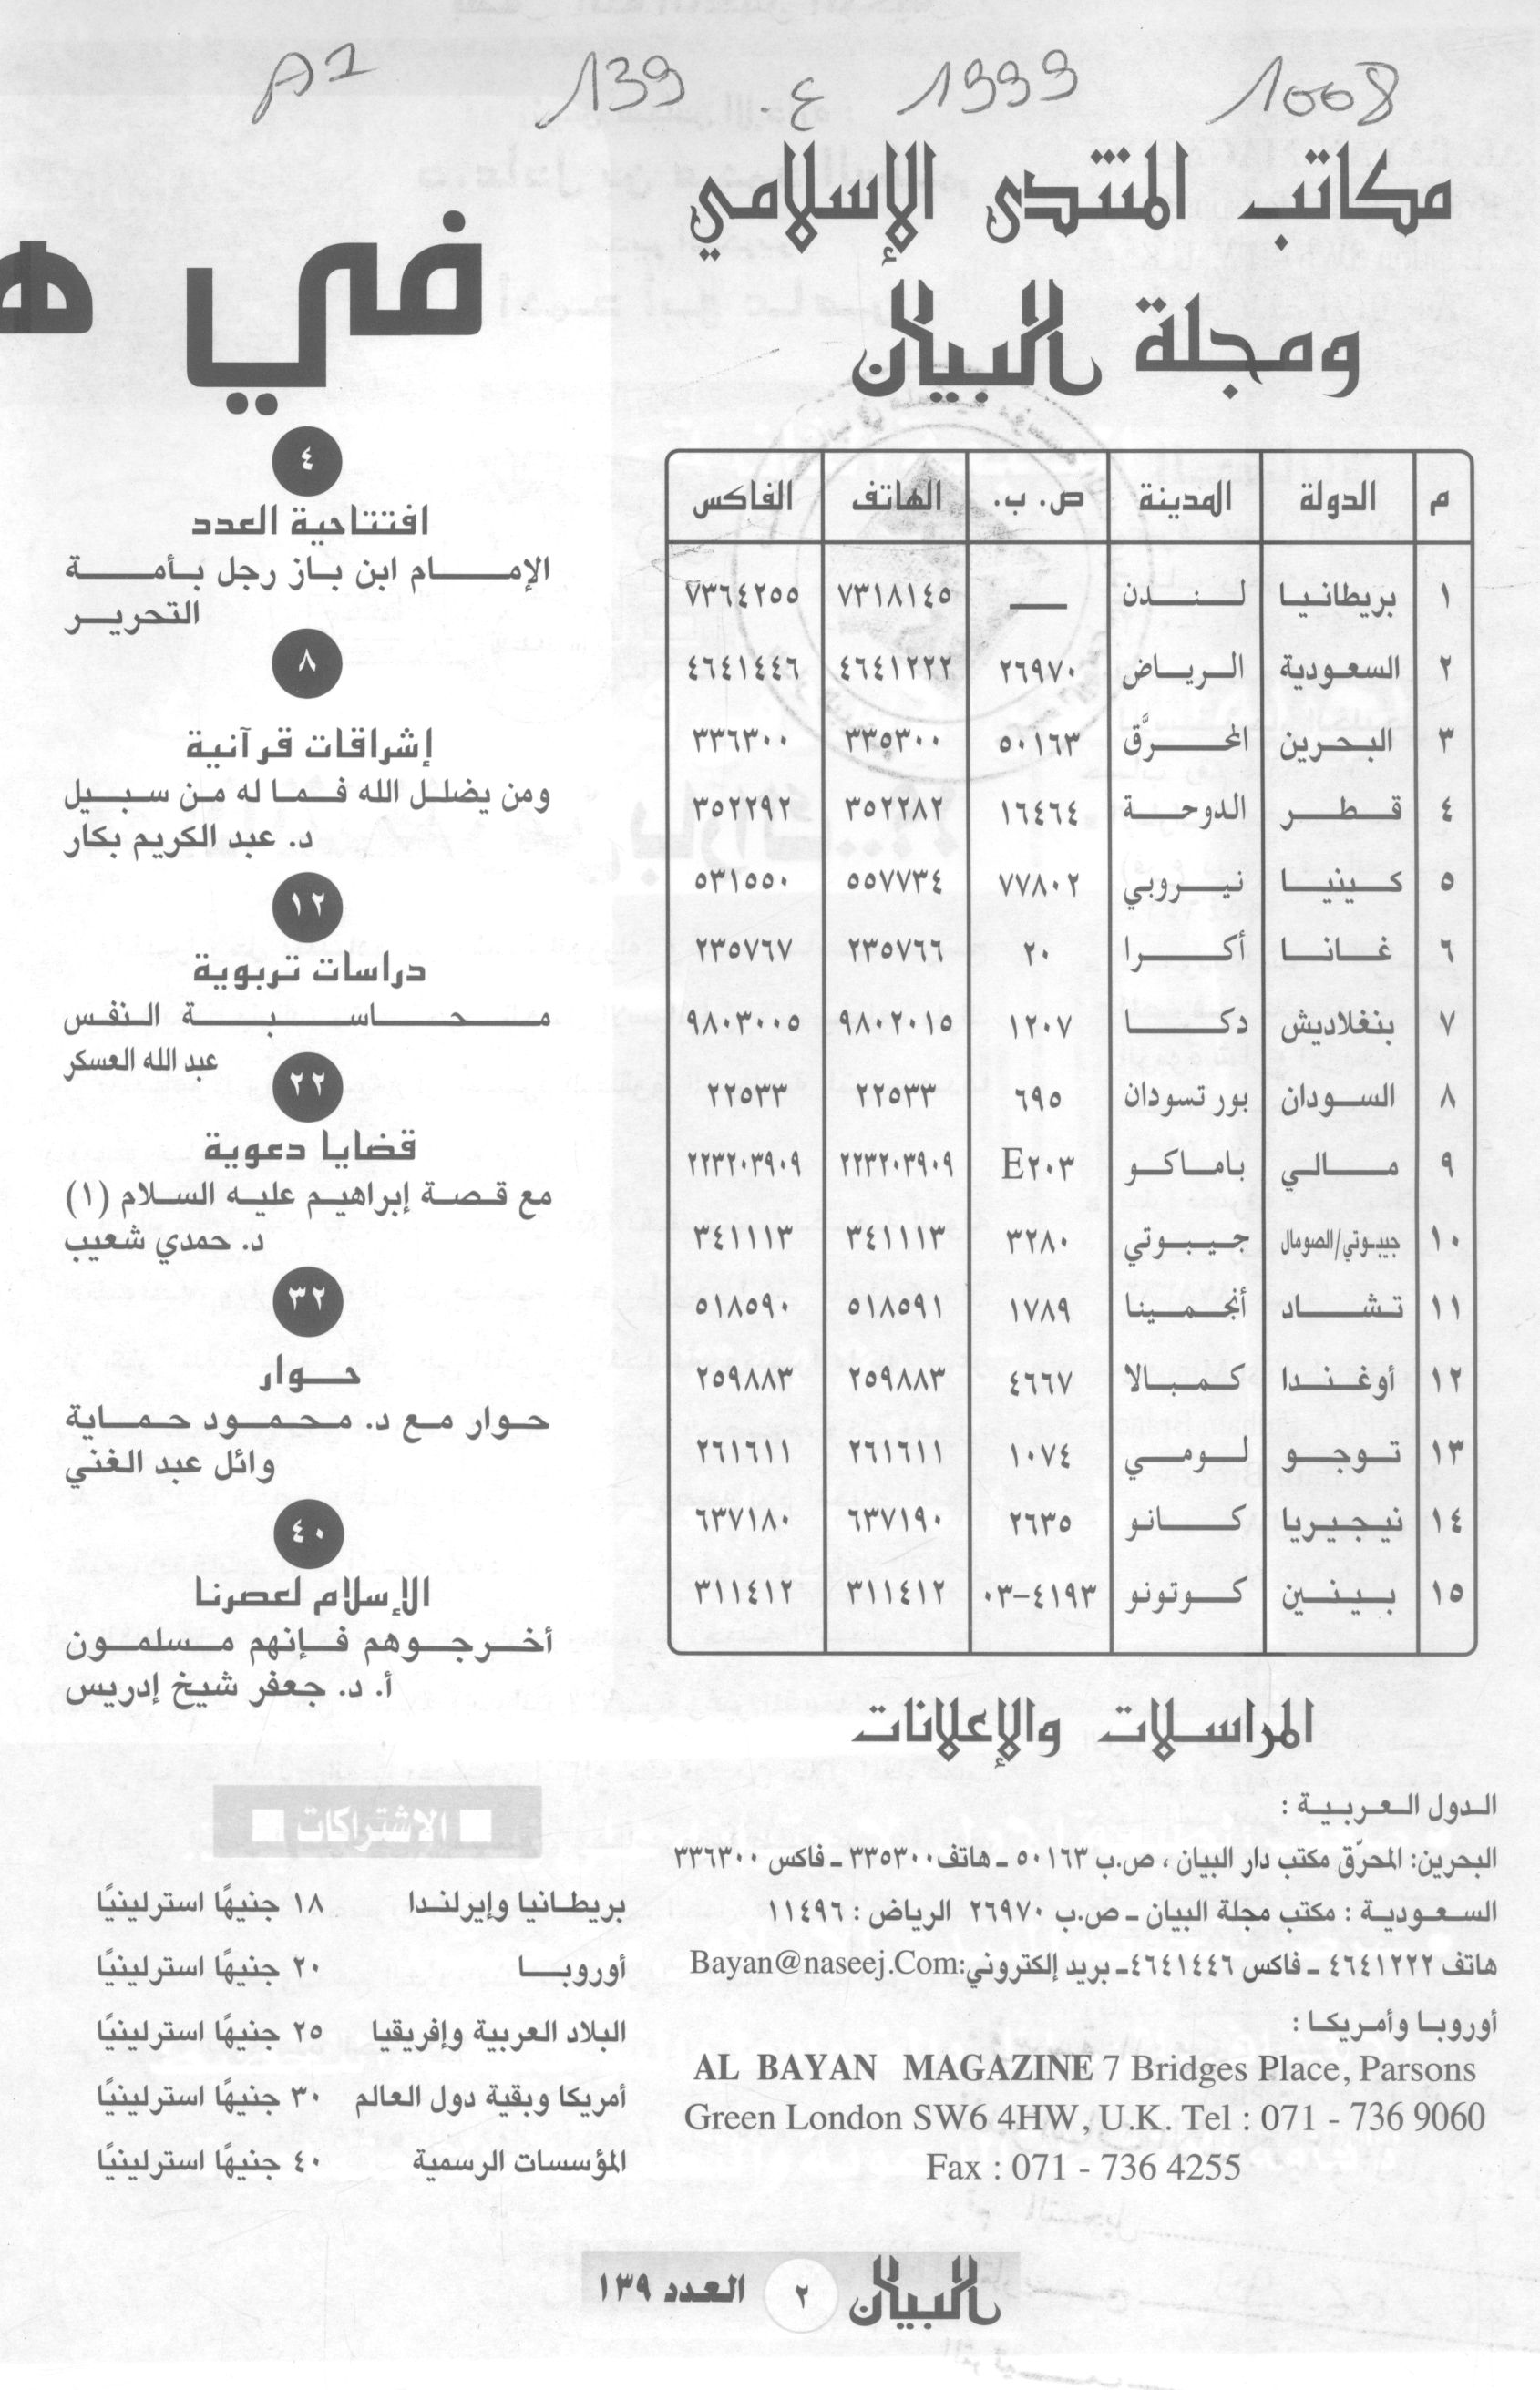 1008 1999 ع. 139 A1
مكاتب المنتدى الإسلامي
ومجلة البيان
م الدولة المدينة ص. ب. الهاتف الفاكس
١ بريطانيا لندن — ٧٣١٨١٤٥ ٧٣٦٤٢٥٥
٢ السعودية الرياض ٢٦٩٧٠ ٤٦٤١٢٢٢ ٤٦٤١٤٤٦
٣ البحرين المحرَّق ٥٠١٦٣ ٣٣٥٣٠٠ ٣٣٦٣٠٠
٤ قطر الدوحة ١٦٤٦٤ ٣٥٢٢٨٢ ٣٥٢٢٩٢
٥ كينيا نيروبي ٧٧٨٠٢ ٥٥٧٧٣٤ ٥٣١٥٥٠
٦ غانا أكرا ٢٠ ٢٣٥٧٦٦ ٢٣٥٧٦٧
٧ بنغلاديش دكا ١٢٠٧ ٩٨٠٢٠١٥ ٩٨٠٣٠٠٥
٨ السودان بور تسودان ٦٩٥ ٢٢٥٣٣ ٢٢٥٣٣
٩ مالي باماكو E٢٠٣ ٢٢٣٢٠٣٩٠٩ ٢٢٣٢٠٣٩٠٩
١٠ جيبوتي/الصومال جيبوتي ٣٢٨٠ ٣٤١١١٣ ٣٤١١١٣
١١ تشاد أنجمينا ١٧٨٩ ٥١٨٥٩١ ٥١٨٥٩٠
١٢ أوغندا كمبالا ٤٦٦٧ ٢٥٩٨٨٣ ٢٥٩٨٨٣
١٣ توجو لومي ١٠٧٤ ٢٦١٦١١ ٢٦١٦١١
١٤ نيجيريا كانو ٢٦٣٥ ٦٣٧١٩٠ ٦٣٧١٨٠
١٥ بينين كوتونو ٠٣-٤١٩٣ ٣١١٤١٢ ٣١١٤١٢
المراسلات والإعلانات
الدول العربية :
البحرين: المحرّق مكتب دار البيان ، ص.ب ٥٠١٦٣ ـ هاتف ٣٣٥٣٠٠ ـ فاكس ٣٣٦٣٠٠
السعودية : مكتب مجلة البيان ـ ص.ب ٢٦٩٧٠ الرياض : ١١٤٩٦
هاتف ٤٦٤١٢٢٢ ـ فاكس ٤٦٤١٤٤٦ـ بريد إلكتروني:Bayan@naseej.Com
أوروبا وأمريكا :
AL BAYAN MAGAZINE 7 Bridges Place, Parsons
Green London SW6 4HW, U.K. Tel : 071 - 736 9060
Fax : 071 - 736 4255
في ه
٤
افتتاحية العدد
الإمام ابن باز رجل بأمة
التحرير
٨
إشراقات قرآنية
ومن يضلل الله فما له من سبيل
د. عبد الكريم بكار
١٢
دراسات تربوية
محاسبة النفس
عبد الله العسكر
٢٢
قضايا دعوية
مع قصة إبراهيم عليه السلام (١)
د. حمدي شعيب
٣٢
حوار
حوار مع د. محمود حماية
وائل عبد الغني
٤٠
الإسلام لعصرنا
أخرجوهم فإنهم مسلمون
أ. د. جعفر شيخ إدريس
الاشتراكات
بريطانيا وإيرلندا ١٨ جنيهًا استرلينيًا
أوروبا ٢٠ جنيهًا استرلينيًا
البلاد العربية وإفريقيا ٢٥ جنيهًا استرلينيًا
أمريكا وبقية دول العالم ٣٠ جنيهًا استرلينيًا
المؤسسات الرسمية ٤٠ جنيهًا استرلينيًا
البيان ٢ العدد ١٣٩